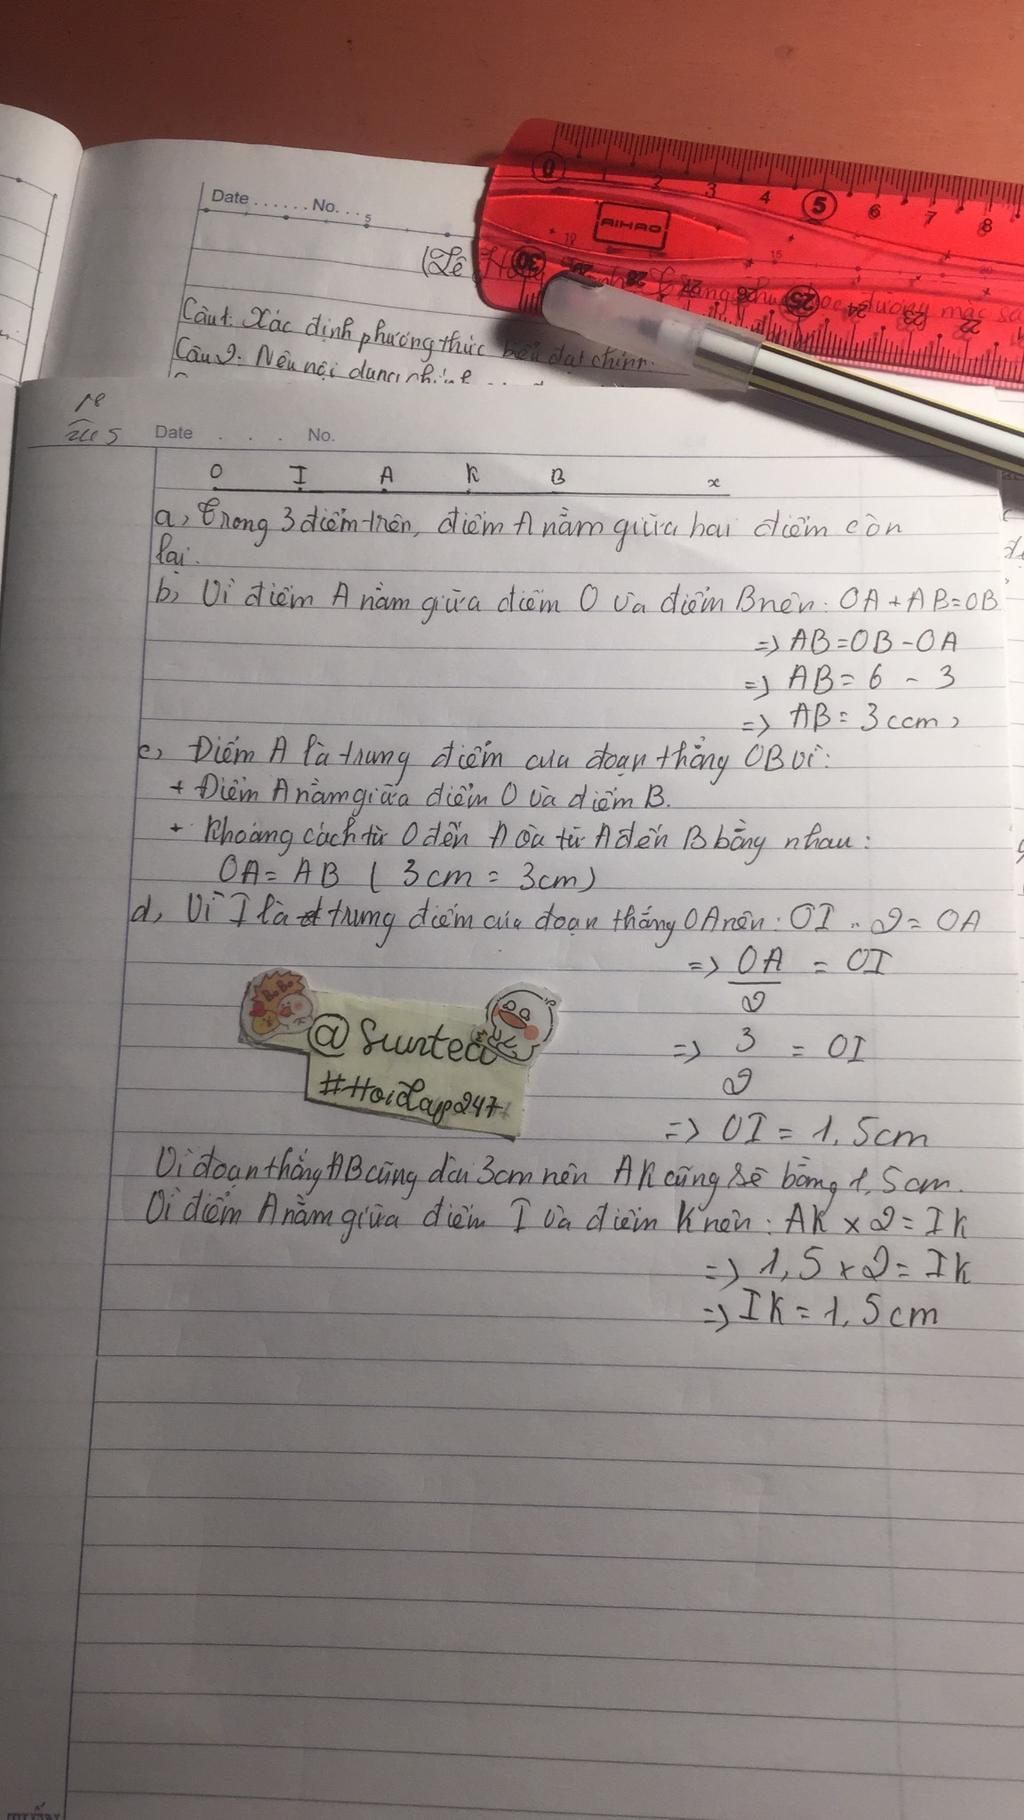 Date ...... No. ... 5
(Lê
Câu1: Xác định phương thức biểu đạt chính.
Câu 2: Nêu nội dung chính
AIHAO
0 1 2 3 4 5 6 7 8
30 28 27 25 24 22
Date . . . . No.
O I A K B x
a, Trong 3 điểm trên, điểm A nằm giữa hai điểm còn
lại.
b, Vì điểm A nằm giữa điểm O và điểm B nên: OA + AB = OB
=> AB = OB - OA
=> AB = 6 - 3
=> AB = 3 (cm)
c, Điểm A là trung điểm của đoạn thẳng OB vì:
+ Điểm A nằm giữa điểm O và điểm B.
+ Khoảng cách từ O đến A và từ A đến B bằng nhau:
OA = AB ( 3cm = 3cm)
d, Vì I là trung điểm của đoạn thẳng OA nên: OI . 2 = OA
=> OA/2 = OI
=> 3/2 = OI
=> OI = 1,5cm
@Suntea
#Hoidap247
Vì đoạn thẳng AB cũng dài 3cm nên AK cũng sẽ bằng 1,5cm.
Vì điểm A nằm giữa điểm I và điểm K nên: AK x 2 = IK
=> 1,5 x 2 = IK
=> IK = 1,5cm